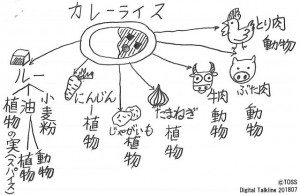 カレーライス
とり肉
動物
ぶた肉
動物
牛肉
動物
たまねぎ
植物
じゃがいも
植物
にんじん
植物
ルー
小麦粉
油
動物
植物
植物の実(スパイス)
©TOSS
Digital Talkline 201807